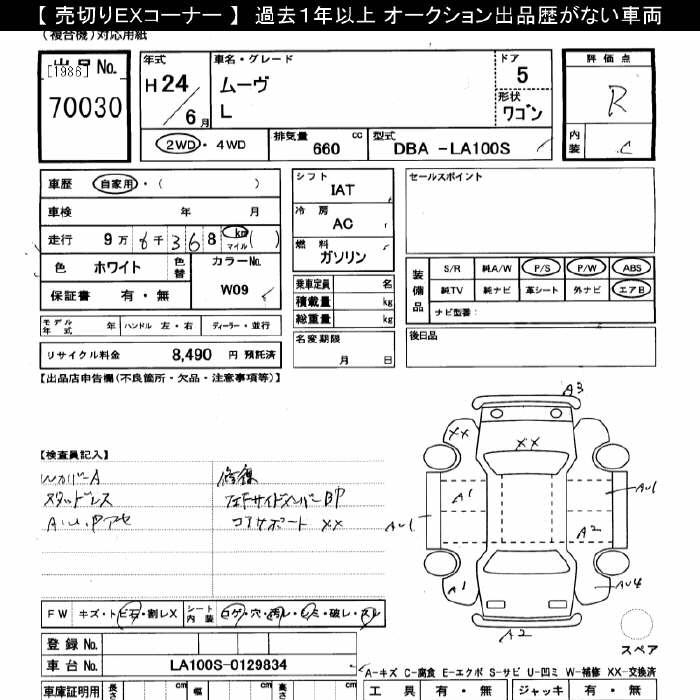 【 売切りEXコーナー 】 過去1年以上 オークション出品歴がない車両
(複合機)対応用紙
出品No.
[1986]
70030
年式
H 24
6 月
車名・グレード
ムーヴ
L
ドア
5
形状
ワゴン
評価点
R
内装
C
2WD ・ 4WD
排気量 660 cc
型式 DBA -LA100S
車歴 自家用・( )
車検 年 月
走行 9 万 6 千 3 6 8 km マイル ( )
色 ホワイト 色替
カラーNo. W09
保証書 有・無
シフト
IAT
冷房
AC
燃料
ガソリン
セールスポイント
乗車定員 名
積載量 kg
総重量 kg
装備品
S/R 純A/W P/S P/W ABS
純TV 純ナビ 革シート 外ナビ エアB
ナビ型番:
モデル年式 年 ハンドル 左・右 ディーラー・並行
名変期限
月 日
後日品
リサイクル料金 8,490 円 預託済
【出品店申告欄(不良箇所・欠品・注意事項等)】
【検査員記入】
WカバーA
スタッドレス
A.U.Pアセ
修復
左Fサイドメンバー BP
コアサポート XX
A3
XX
XX
A1
AU1
AU1
A2
A1
AU4
A2
スペア
FW キズ・トビ石・割レX
シート内装 コゲ・穴・汚レ・シミ・破レ・スレ
登録No.
車台No. LA100S-0129834
A-キズ C-腐食 E-エクボ S-サビ U-凹ミ W-補修 XX-交換済
車庫証明用 長さ cm 幅 cm 高さ cm
工具 有・無 ジャッキ 有・無